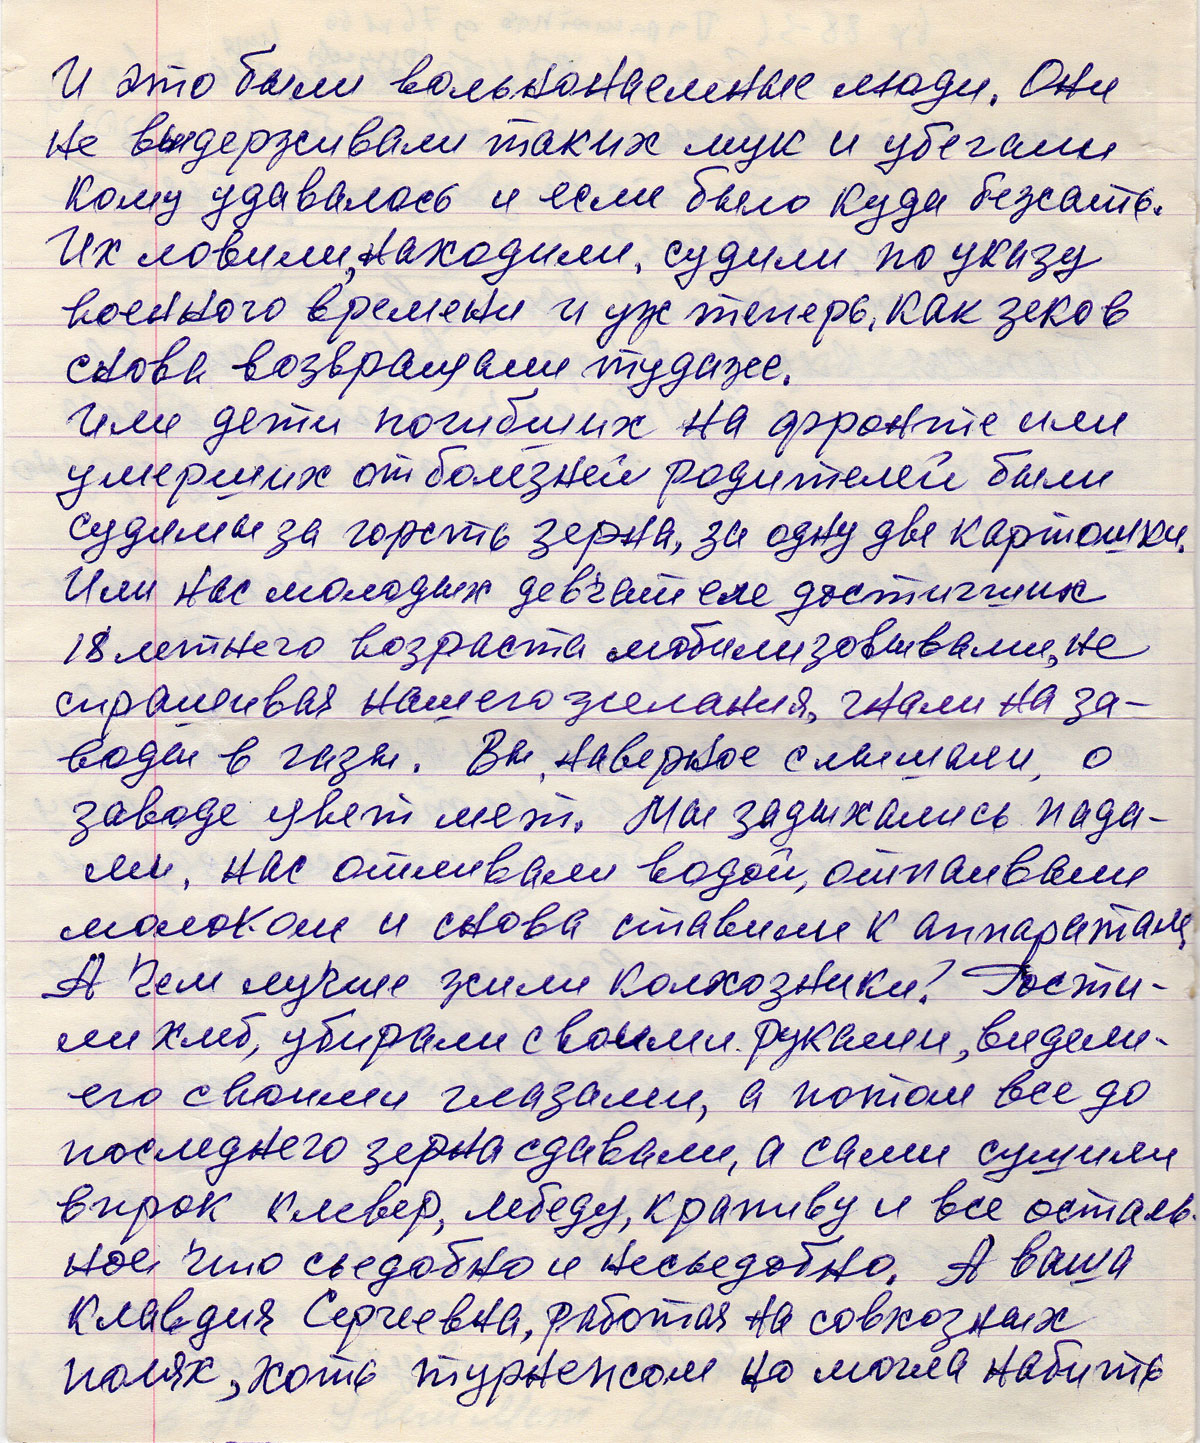 И это были вольнонаемные люди. Они
не выдерживали таких мук и убегали
кому удавалось и если было куда бежать.
Их ловили, находили, судили по указу
военного времени и уж теперь, как зеков
снова возвращали тудаже.
Или дети погибших на фронте или
умерших от болезней родителей были
судимы за горсть зерна, за одну две картошки.
Или нас молодых девчат еле достигших
18 летнего возраста мобилизовывали, не
спрашивая нашего желания, гнали на за-
воды в газы. Вы, наверное слышали, о
заводе цвет мет. Мы задыхались пада-
ли, нас отливали водой, отпаивали
молоком и снова ставили к аппаратам,
А чем лучше жили колхозники? Рости-
ли хлеб, убирали своими руками, видели-
его своими глазами, а потом все до
последнего зерна сдавали, а сами сушили
впрок клевер, лебеду, крапиву и все осталь-
ное что сьедобно и несьедобно. А ваша
Клавдия Сергеевна, работая на совхозных
полях, хоть турнепсом но могла набить